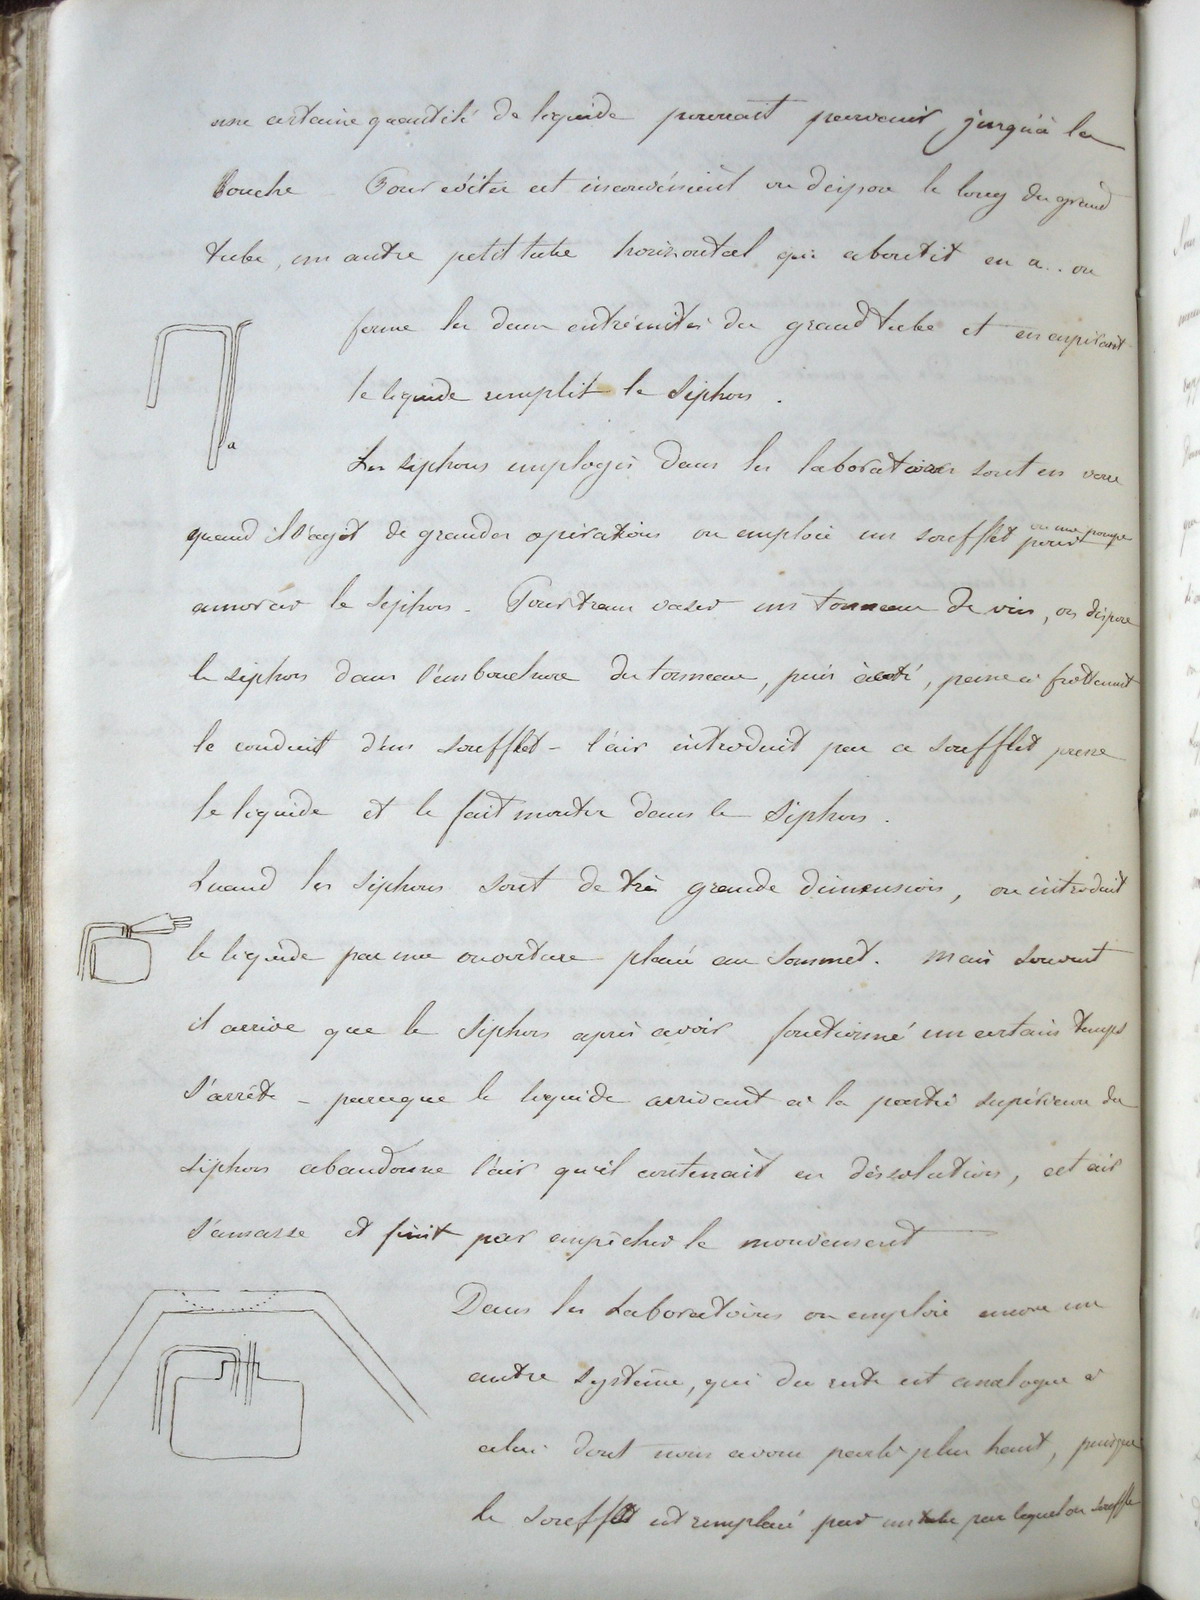 une certaine quantité de liquide pourrait parvenir jusqu'à la
bouche Pour éviter cet inconvénient on dispose le long du grand
tube, un autre petit tube horizontal qui aboutit en a.. on
ferme les deux extrémités du grand tube et en aspirant
le liquide remplit le siphon .
a
Les siphons employés dans les laboratoires sont en verre
quand il s'agit de grandes opérations on emploie un soufflet ou une pompe pour
amorcer le siphon - Pour transvaser un tonneau de vin, on dispose
le siphon dans l'embouchure du tonneau, puis à côté, passe à frottement
le conduit d'un soufflet - l'air introduit par ce soufflet presse
le liquide et le fait monter dans le siphon .
Quand les siphons sont de très grande dimension, on introduit
le liquide par une ouverture placée au sommet. Mais souvent
il arrive que le siphon après avoir fonctionné un certain temps
s'arrête - parceque le liquide arrivant à la partie supérieure du
siphon abandonne l'air qu'il contenait en dissolution, cet air
s'amasse et finit par empêcher le mouvement
Dans les laboratoires on emploie encore un
autre système, qui du reste est analogue à
celui dont nous avons parlé plus haut, puisque
le soufflet est remplacé par un tube par lequel on souffle